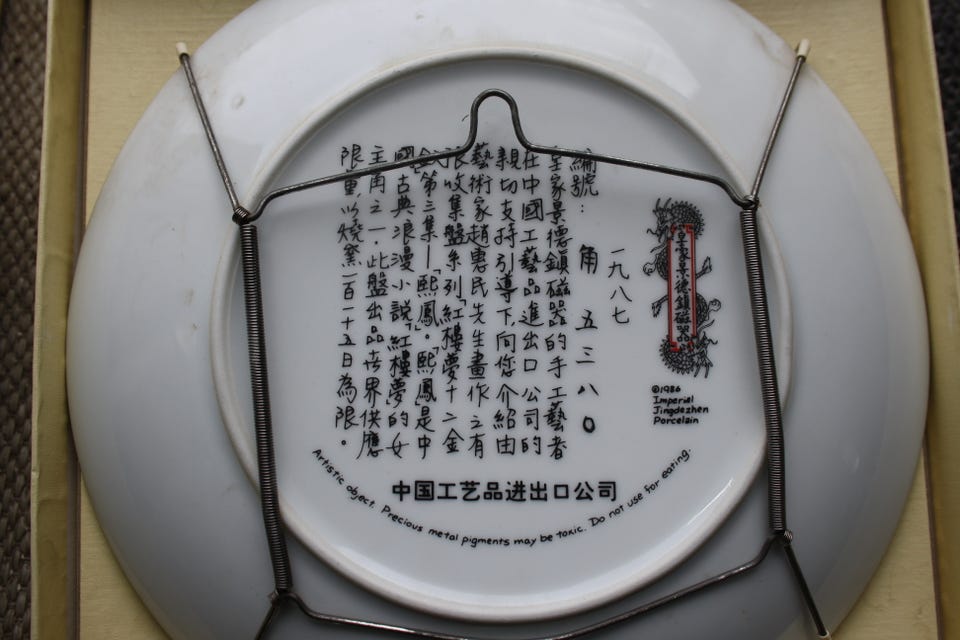 皇家景德鎮磁器
©1986
Imperial
Jingdezhen
Porcelain
一九八七
編號：角 五三八〇
皇家景德鎮磁器的手工藝者
在中國工藝品進出口公司的
親切支持引導下,向您介紹由
藝術家趙惠民先生畫作之有
限收集盤系列「紅樓夢十二金
釵」第三集—「熙鳳」。「熙鳳」是中
國古典浪漫小說「紅樓夢」的女
主角之一．此盤出品世界供應
限量,以燒窯一百一十五日為限。
中国工艺品进出口公司
Artistic object. Precious metal pigments may be toxic. Do not use for eating.